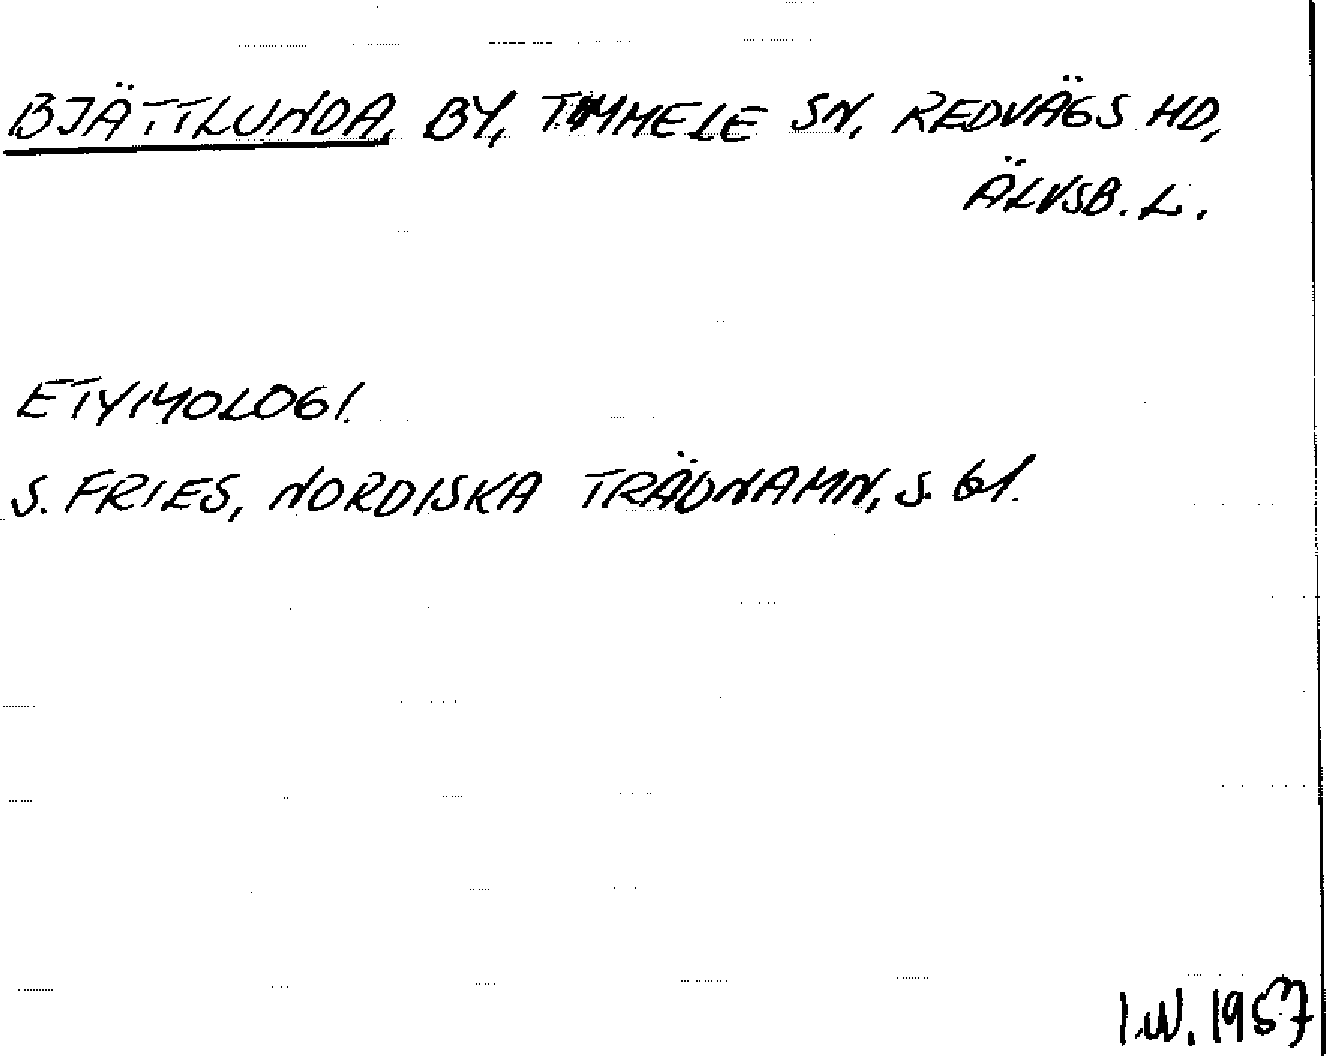 BJÄTTLUNDA, BY, TIMMELE SN, REDVÄGS HD,
ÄLVSB. L.
ETYMOLOGI.
S. FRIES, NORDISKA TRÄDNAMN, S. 61.
I.W. 1957